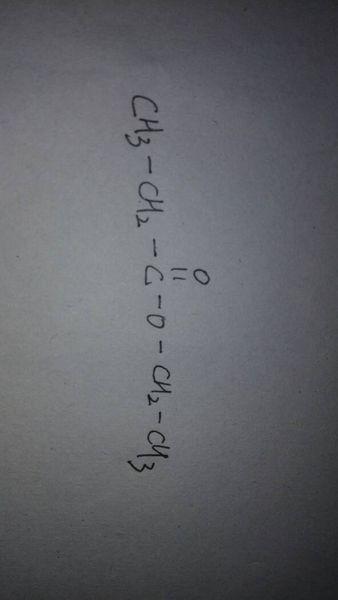 O
||
CH3-CH2-C-O-CH2-CH3